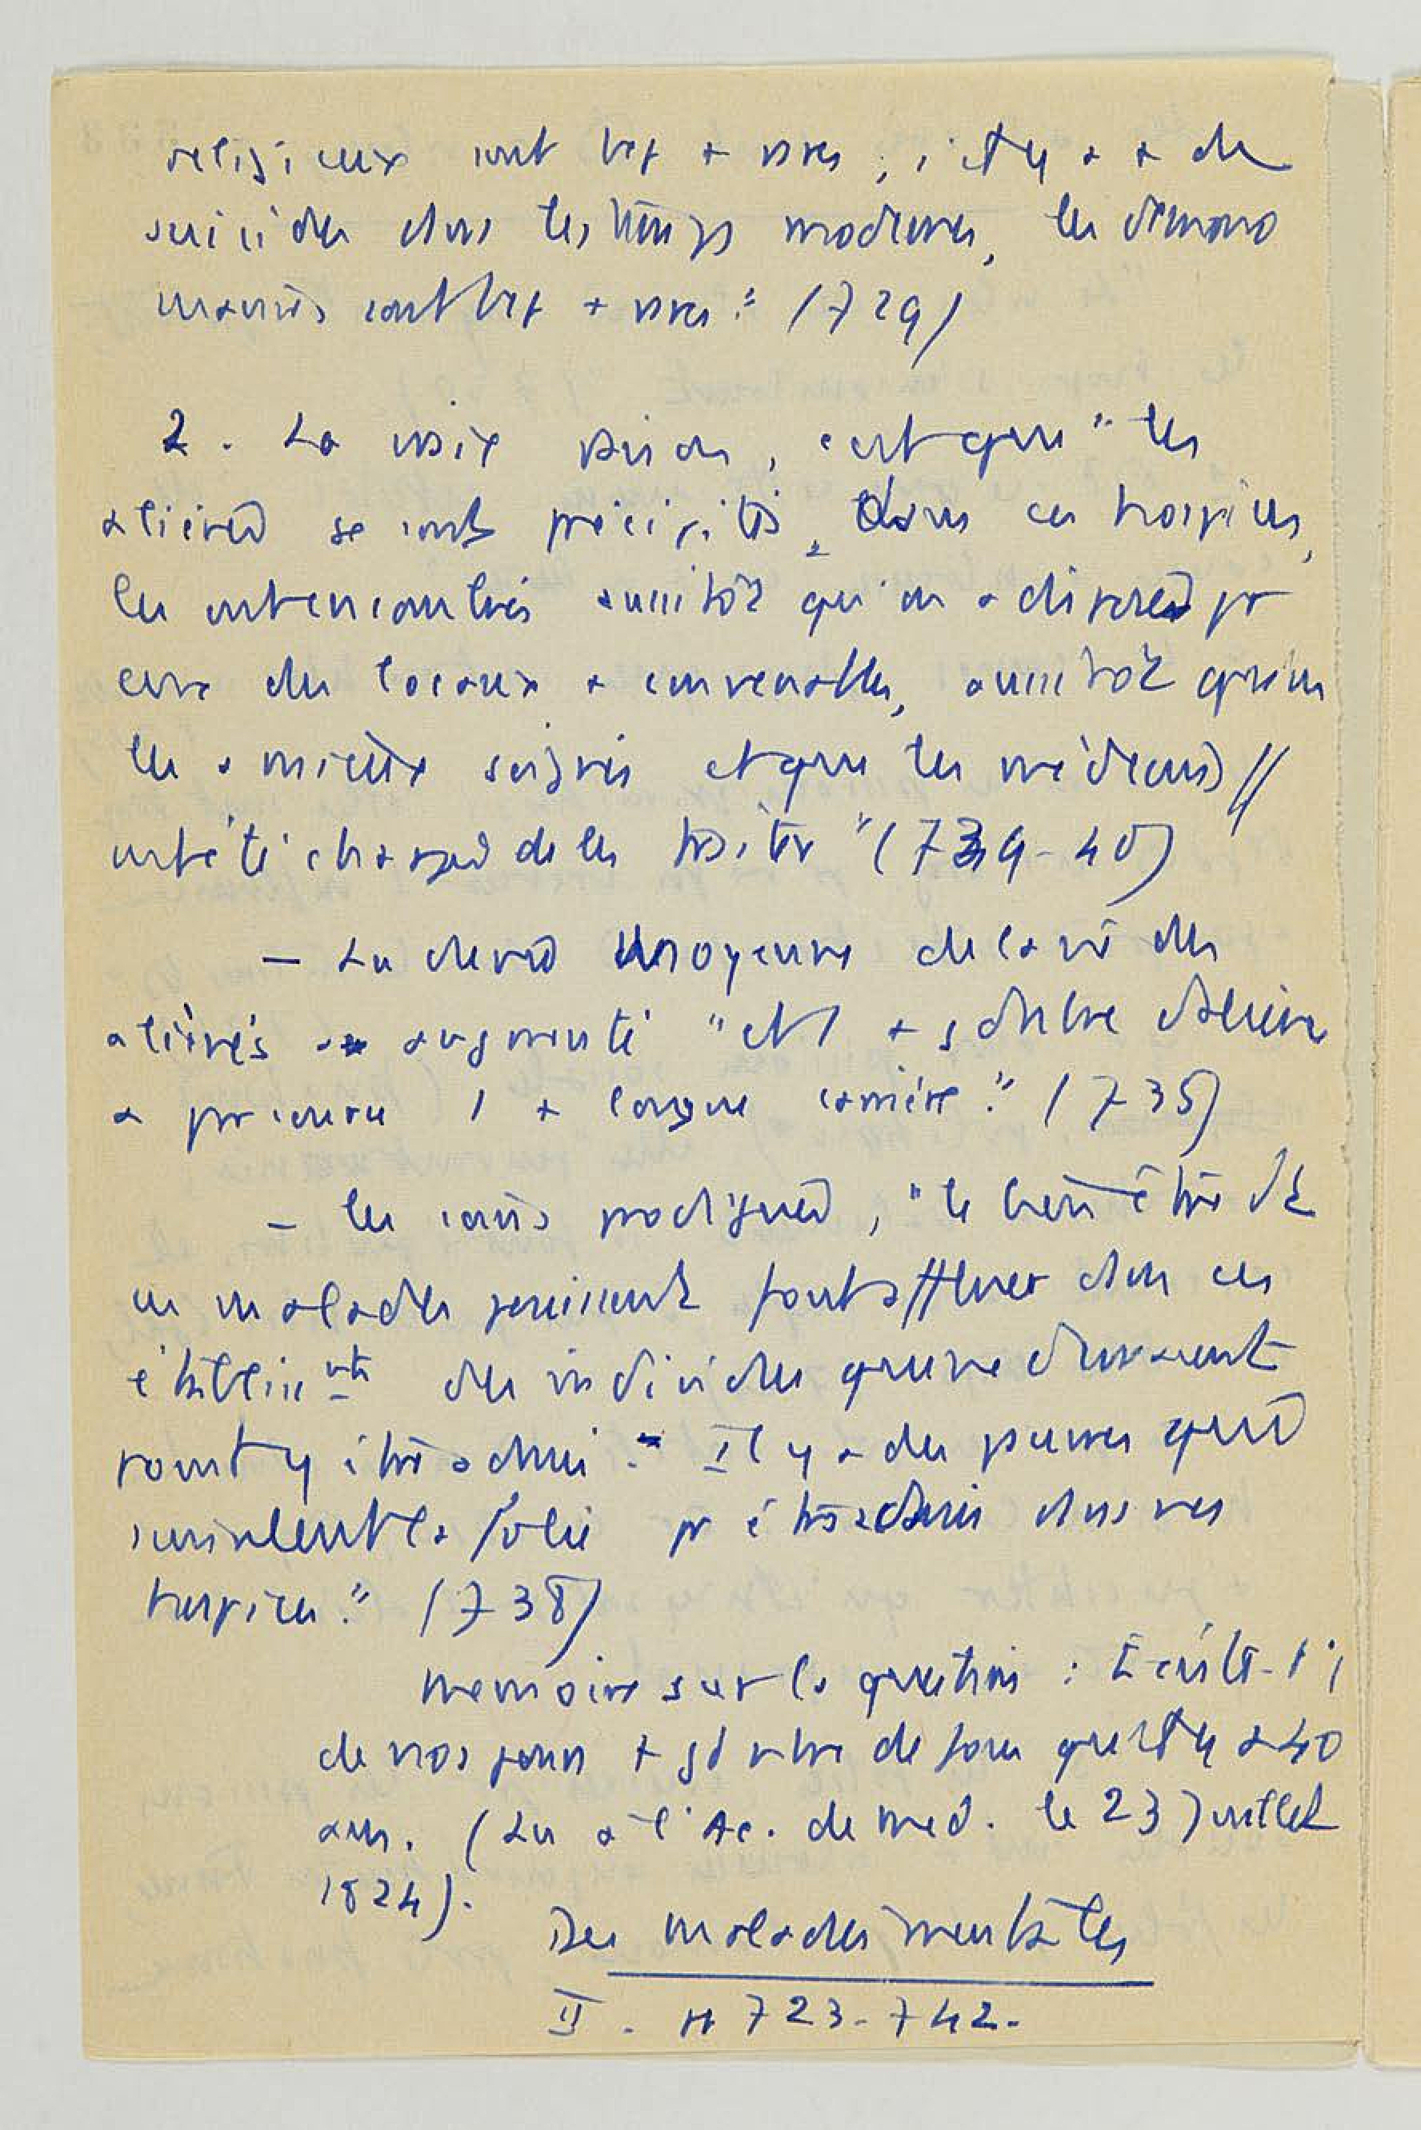 religieux sont bcp + rares ; s'il y a + de
suicides dans les temps modernes, les démono
manies sont bcp + rares." (729)
2. La vraie raison, c'est que "les
aliénés se sont précipités dans ces hospices,
les ont encombrés aussitôt qu'on a disposé pr
eux des locaux + convenables, aussitôt qu'on
les a mieux soignés et que les médecins
ont été chargés de les traiter" (739-40)
- La durée moyenne de la vie des
aliénés a augmenté "et 1 + gd nbre d'aliénés
a parcouru 1 + longue carrière." (735)
- les soins prodigués, "le bien être dt
ces malades jouissent font affluer dans ces
établissts des individus qui ne devraient
point y être admis." Il y a des pauvres qui
simulent la folie pr être admis dans ces
hospices." (738)
Mémoire sur la question : Existe-t-il
de nos jours + gd nbre de fous qu'il y a 40
ans. (Lu à l'Ac. de méd. le 23 Juillet
1824).
Des maladies mentales
II. pp 723-742.